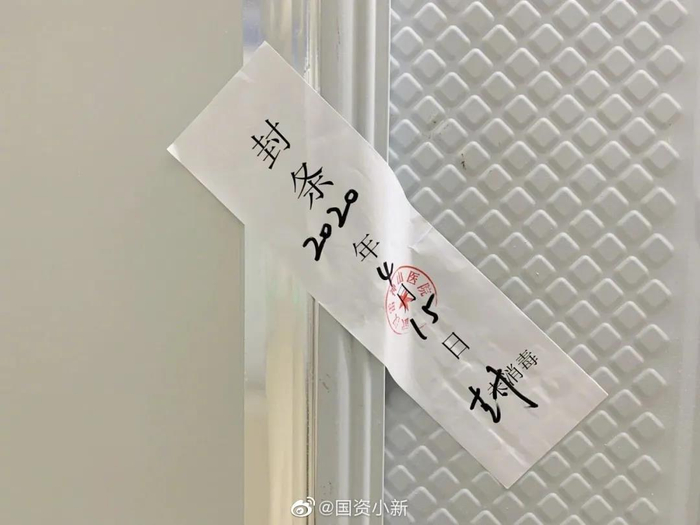 封条
2020年4月15日
封
消毒
山医院
@国资小新